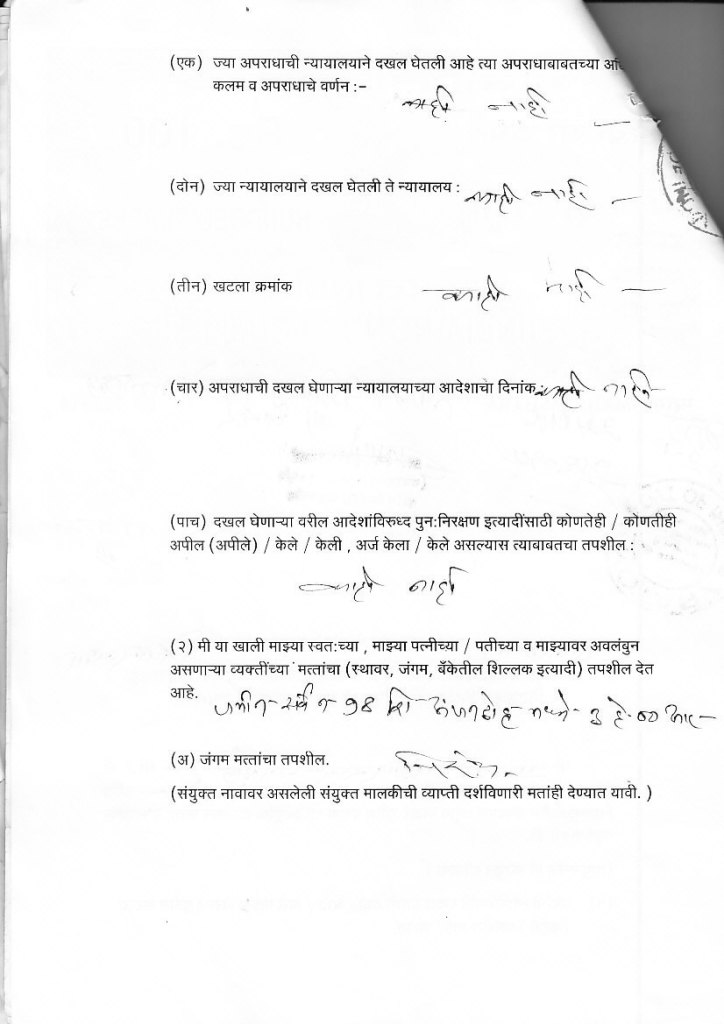 (एक) ज्या अपराधाची न्यायालयाने दखल घेतली आहे त्या अपराधाबाबतच्या
कलम व अपराधाचे वर्णन :-
काही नाही
(दोन) ज्या न्यायालयाने दखल घेतली ते न्यायालय : काही नाही
(तीन) खटला क्रमांक काही नाही
(चार) अपराधाची दखल घेणाऱ्या न्यायालयाच्या आदेशाचा दिनांक: काही नाही
(पाच) दखल घेणाऱ्या वरील आदेशांविरुध्द पुन:निरक्षण इत्यादींसाठी कोणतेही / कोणतीही
अपील (अपीले) / केले / केली , अर्ज केला / केले असल्यास त्याबाबतचा तपशील :
काही नाही
(२) मी या खाली माझ्या स्वत:च्या , माझ्या पत्नीच्या / पतीच्या व माझ्यावर अवलंबुन
असणाऱ्या व्यक्तींच्या मत्तांचा (स्थावर, जंगम, बँकेतील शिल्लक इत्यादी) तपशील देत
आहे. जमीन
(अ) जंगम मत्तांचा तपशील. निरंक
(संयुक्त नावावर असलेली संयुक्त मालकीची व्याप्ती दर्शविणारी मतांही देण्यात यावी. )